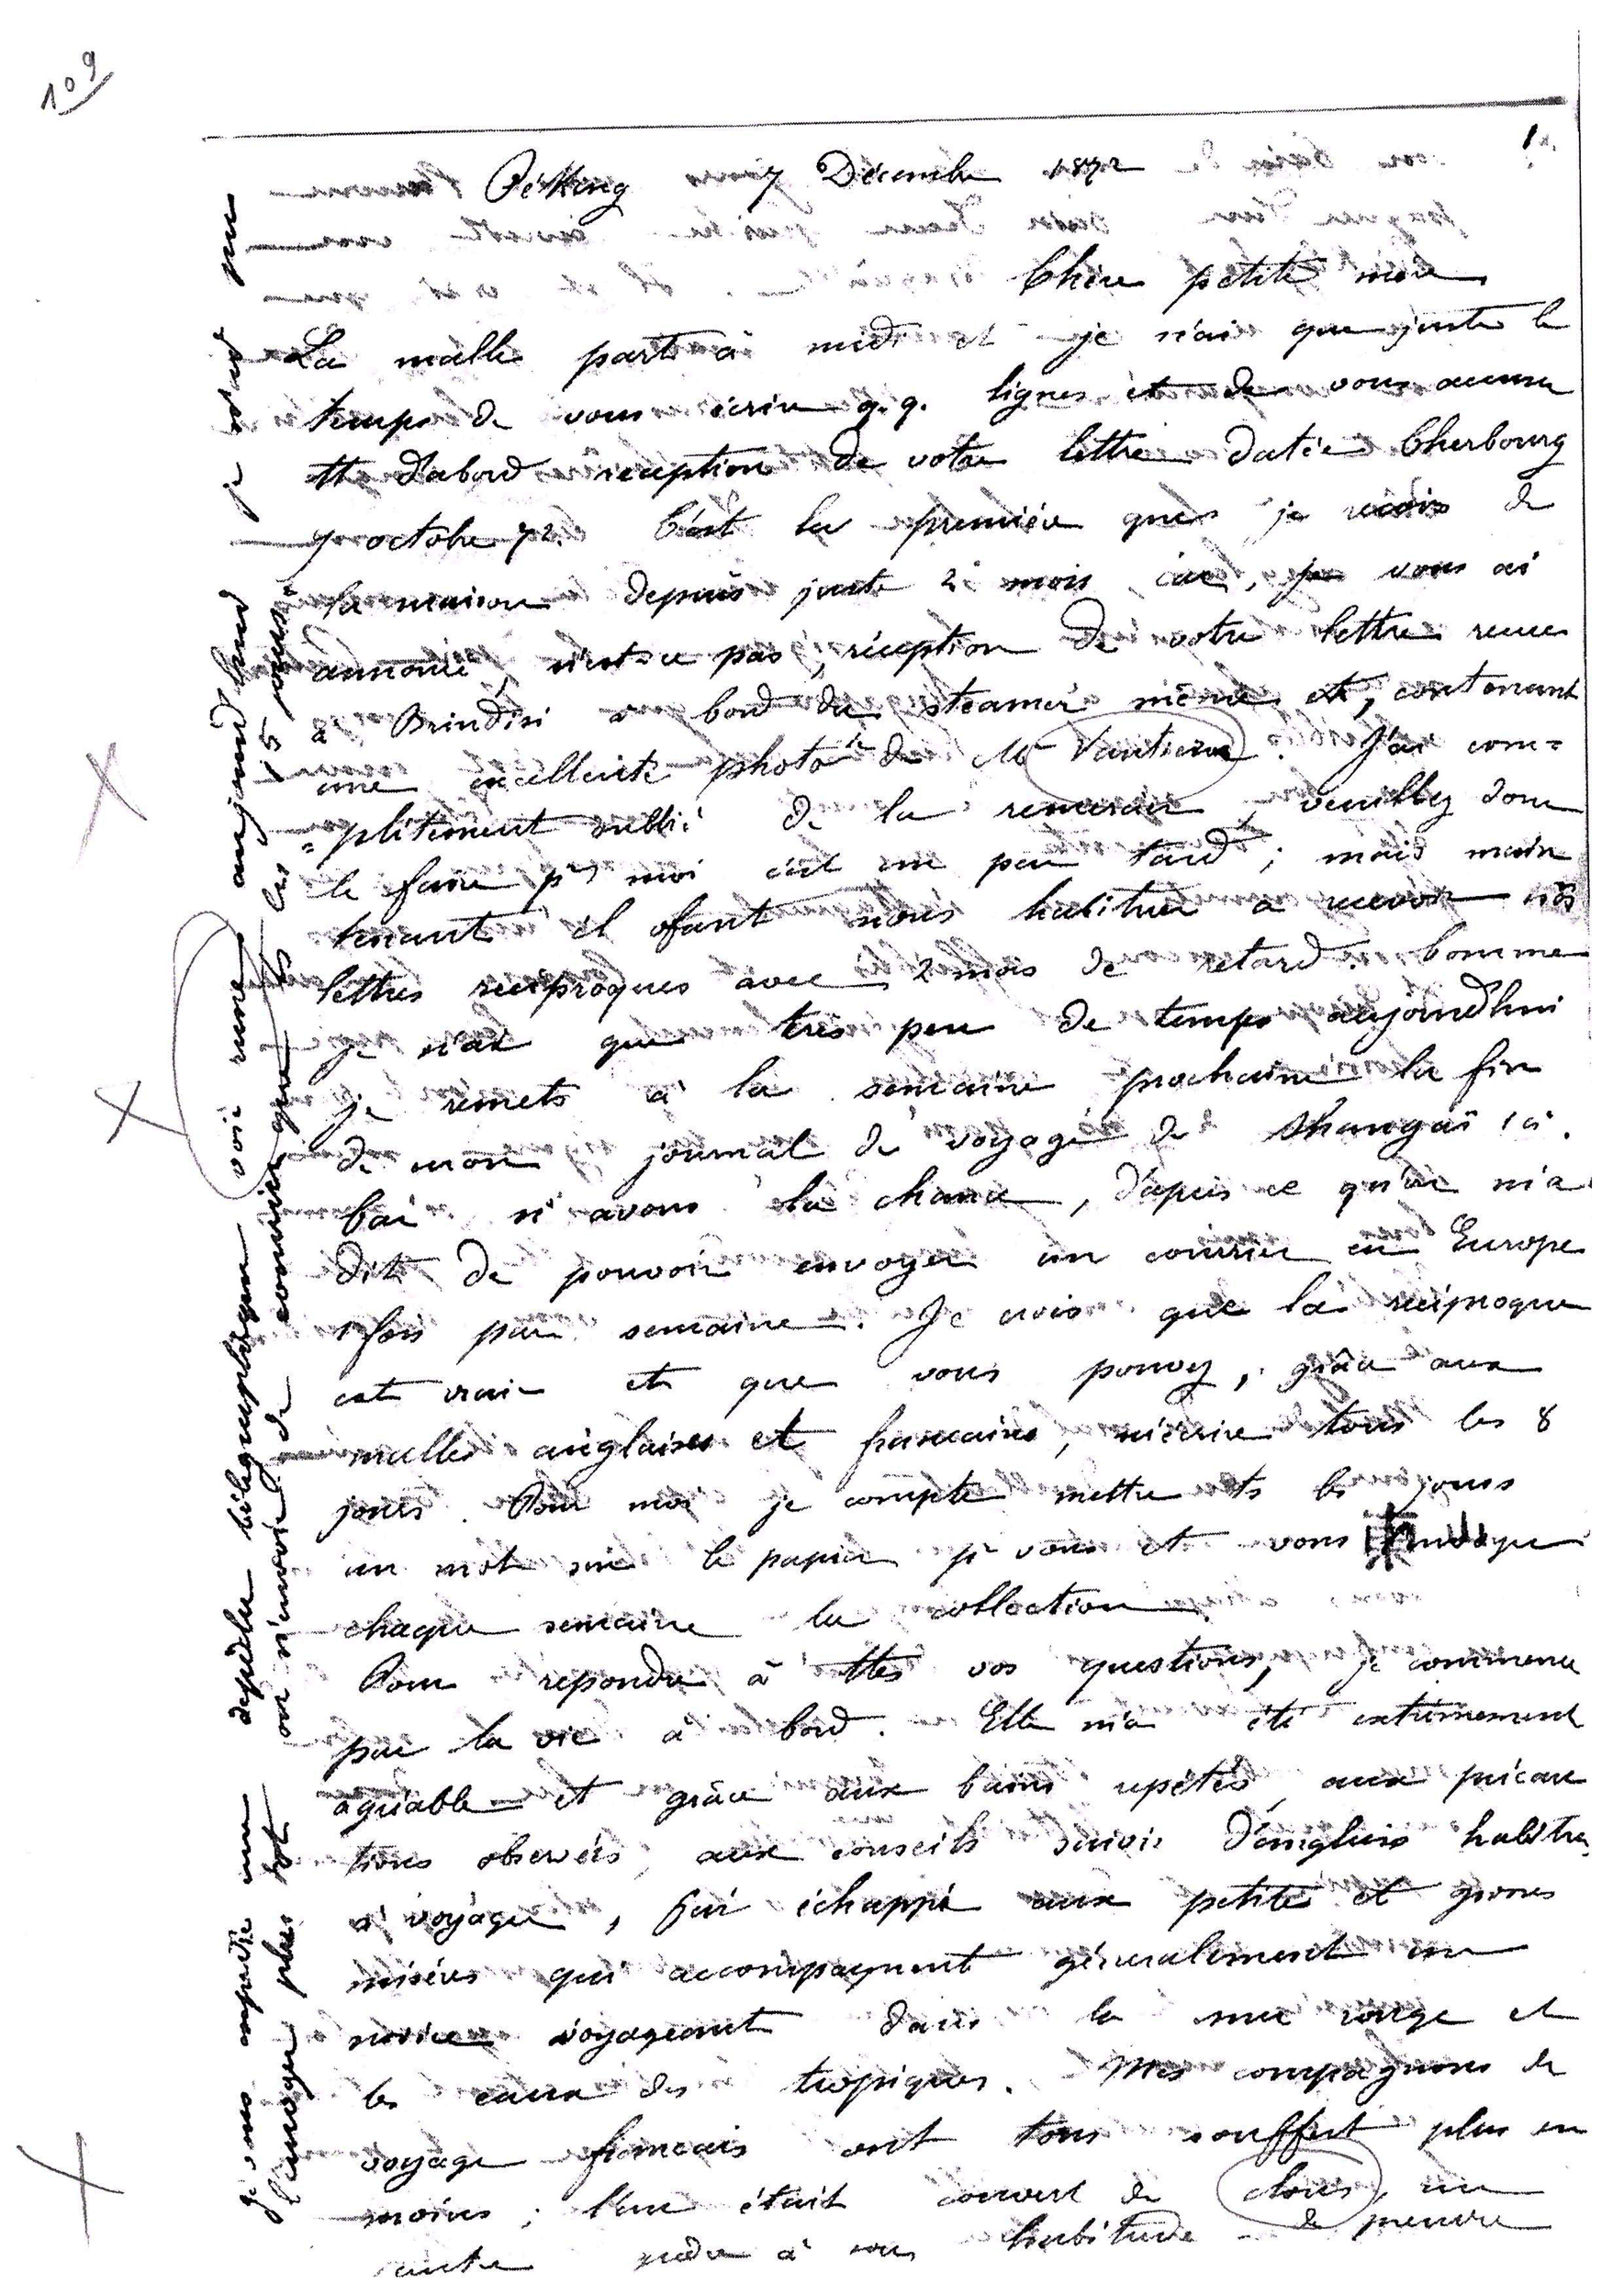 109
1
Péking 7 Décembre 1872
Chère petite mère
La malle part à midi et je n'ai que juste le
temps de vous écrire q.q. lignes et de vous accuser
tt d'abord reception de votre lettre datée Cherbourg
7 octobre 72. C'est la première que je reçois de
la maison depuis juste 2 mois car, je vous ai
annoncé, n'est-ce pas, réception de votre lettre reçue
à Brindisi à bord du steamer même et, contenant
une excellente photo de M Vautier. J'ai com=
=plètement oublié de la remercier, veuillez donc
le faire pr moi c'est un peu tard ; mais main
tenant il faut nous habituer à recevoir nos
lettres réciproques avec 2 mois de retard. Comme
je n'ai que très peu de temps aujourd'hui
je remets à la semaine prochaine la fin
de mon journal de voyage de Shangaï ici.
Car n avons la chance, d'après ce qu'on m'a
dit de pouvoir envoyer un courrier en Europe
1 fois par semaine. Je crois que la réciproque
est vraie et que vous pouvez, grâce aux
malles anglaises et françaises, m'écrire tous les 8
jours. Pour moi je compte mettre ts les jours
un mot sur le papier pr vous et vous envoyer
chaque semaine la collection.
Pour répondre à ttes vos questions, je commence
par la vie à bord. Elle m'a été extrêmement
agréable et grâce aux bains repétés, aux précau
tions observées, aux conseils suivis d'anglais habitués
à voyager, j'ai échappé aux petites et grosses
misères qui accompagnent généralement un
novice voyageant dans la mer rouge et
les eaux des tropiques. Mes compagnons de
voyage français ont tous souffert plus ou
moins ; l'un était couvert de clous, un
autre à son habitude de prendre
je vous expédie une dépêche télégraphique voie russe aujourd'hui je
l'envoyer plus tôt on n'envoie de courrier que ts les 15 jours